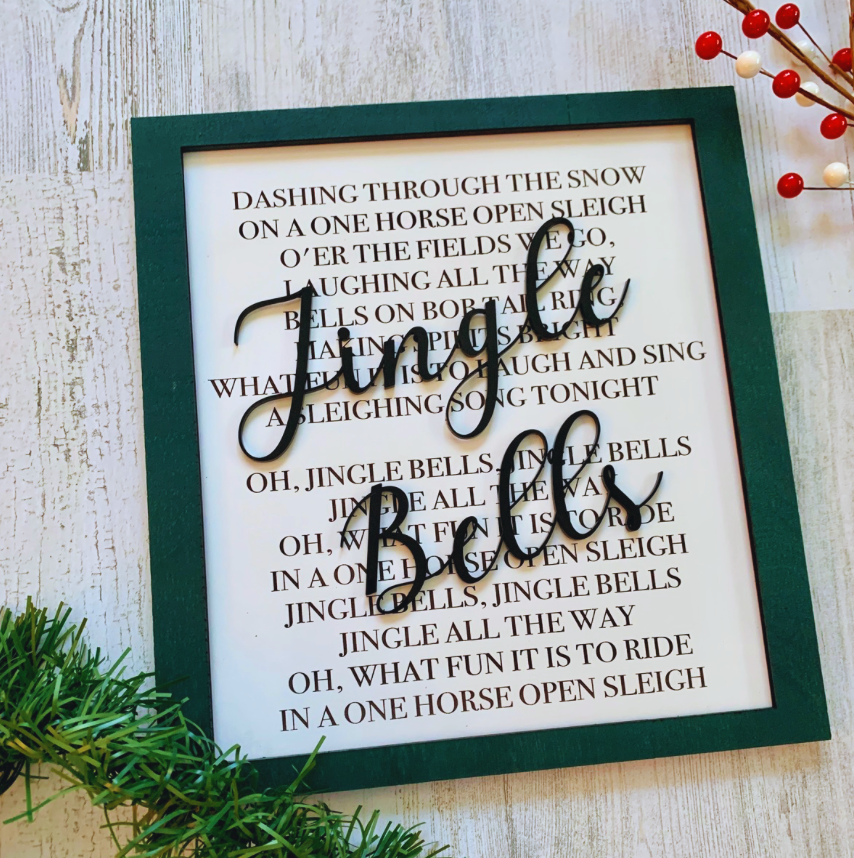 DASHING THROUGH THE SNOW
ON A ONE HORSE OPEN SLEIGH
O'ER THE FIELDS WE GO,
LAUGHING ALL THE WAY
BELLS ON BOB TAIL RING
MAKING SPIRITS BRIGHT
WHAT FUN IT IS TO LAUGH AND SING
A SLEIGHING SONG TONIGHT
Jingle
Bells
OH, JINGLE BELLS, JINGLE BELLS
JINGLE ALL THE WAY
OH, WHAT FUN IT IS TO RIDE
IN A ONE HORSE OPEN SLEIGH
JINGLE BELLS, JINGLE BELLS
JINGLE ALL THE WAY
OH, WHAT FUN IT IS TO RIDE
IN A ONE HORSE OPEN SLEIGH